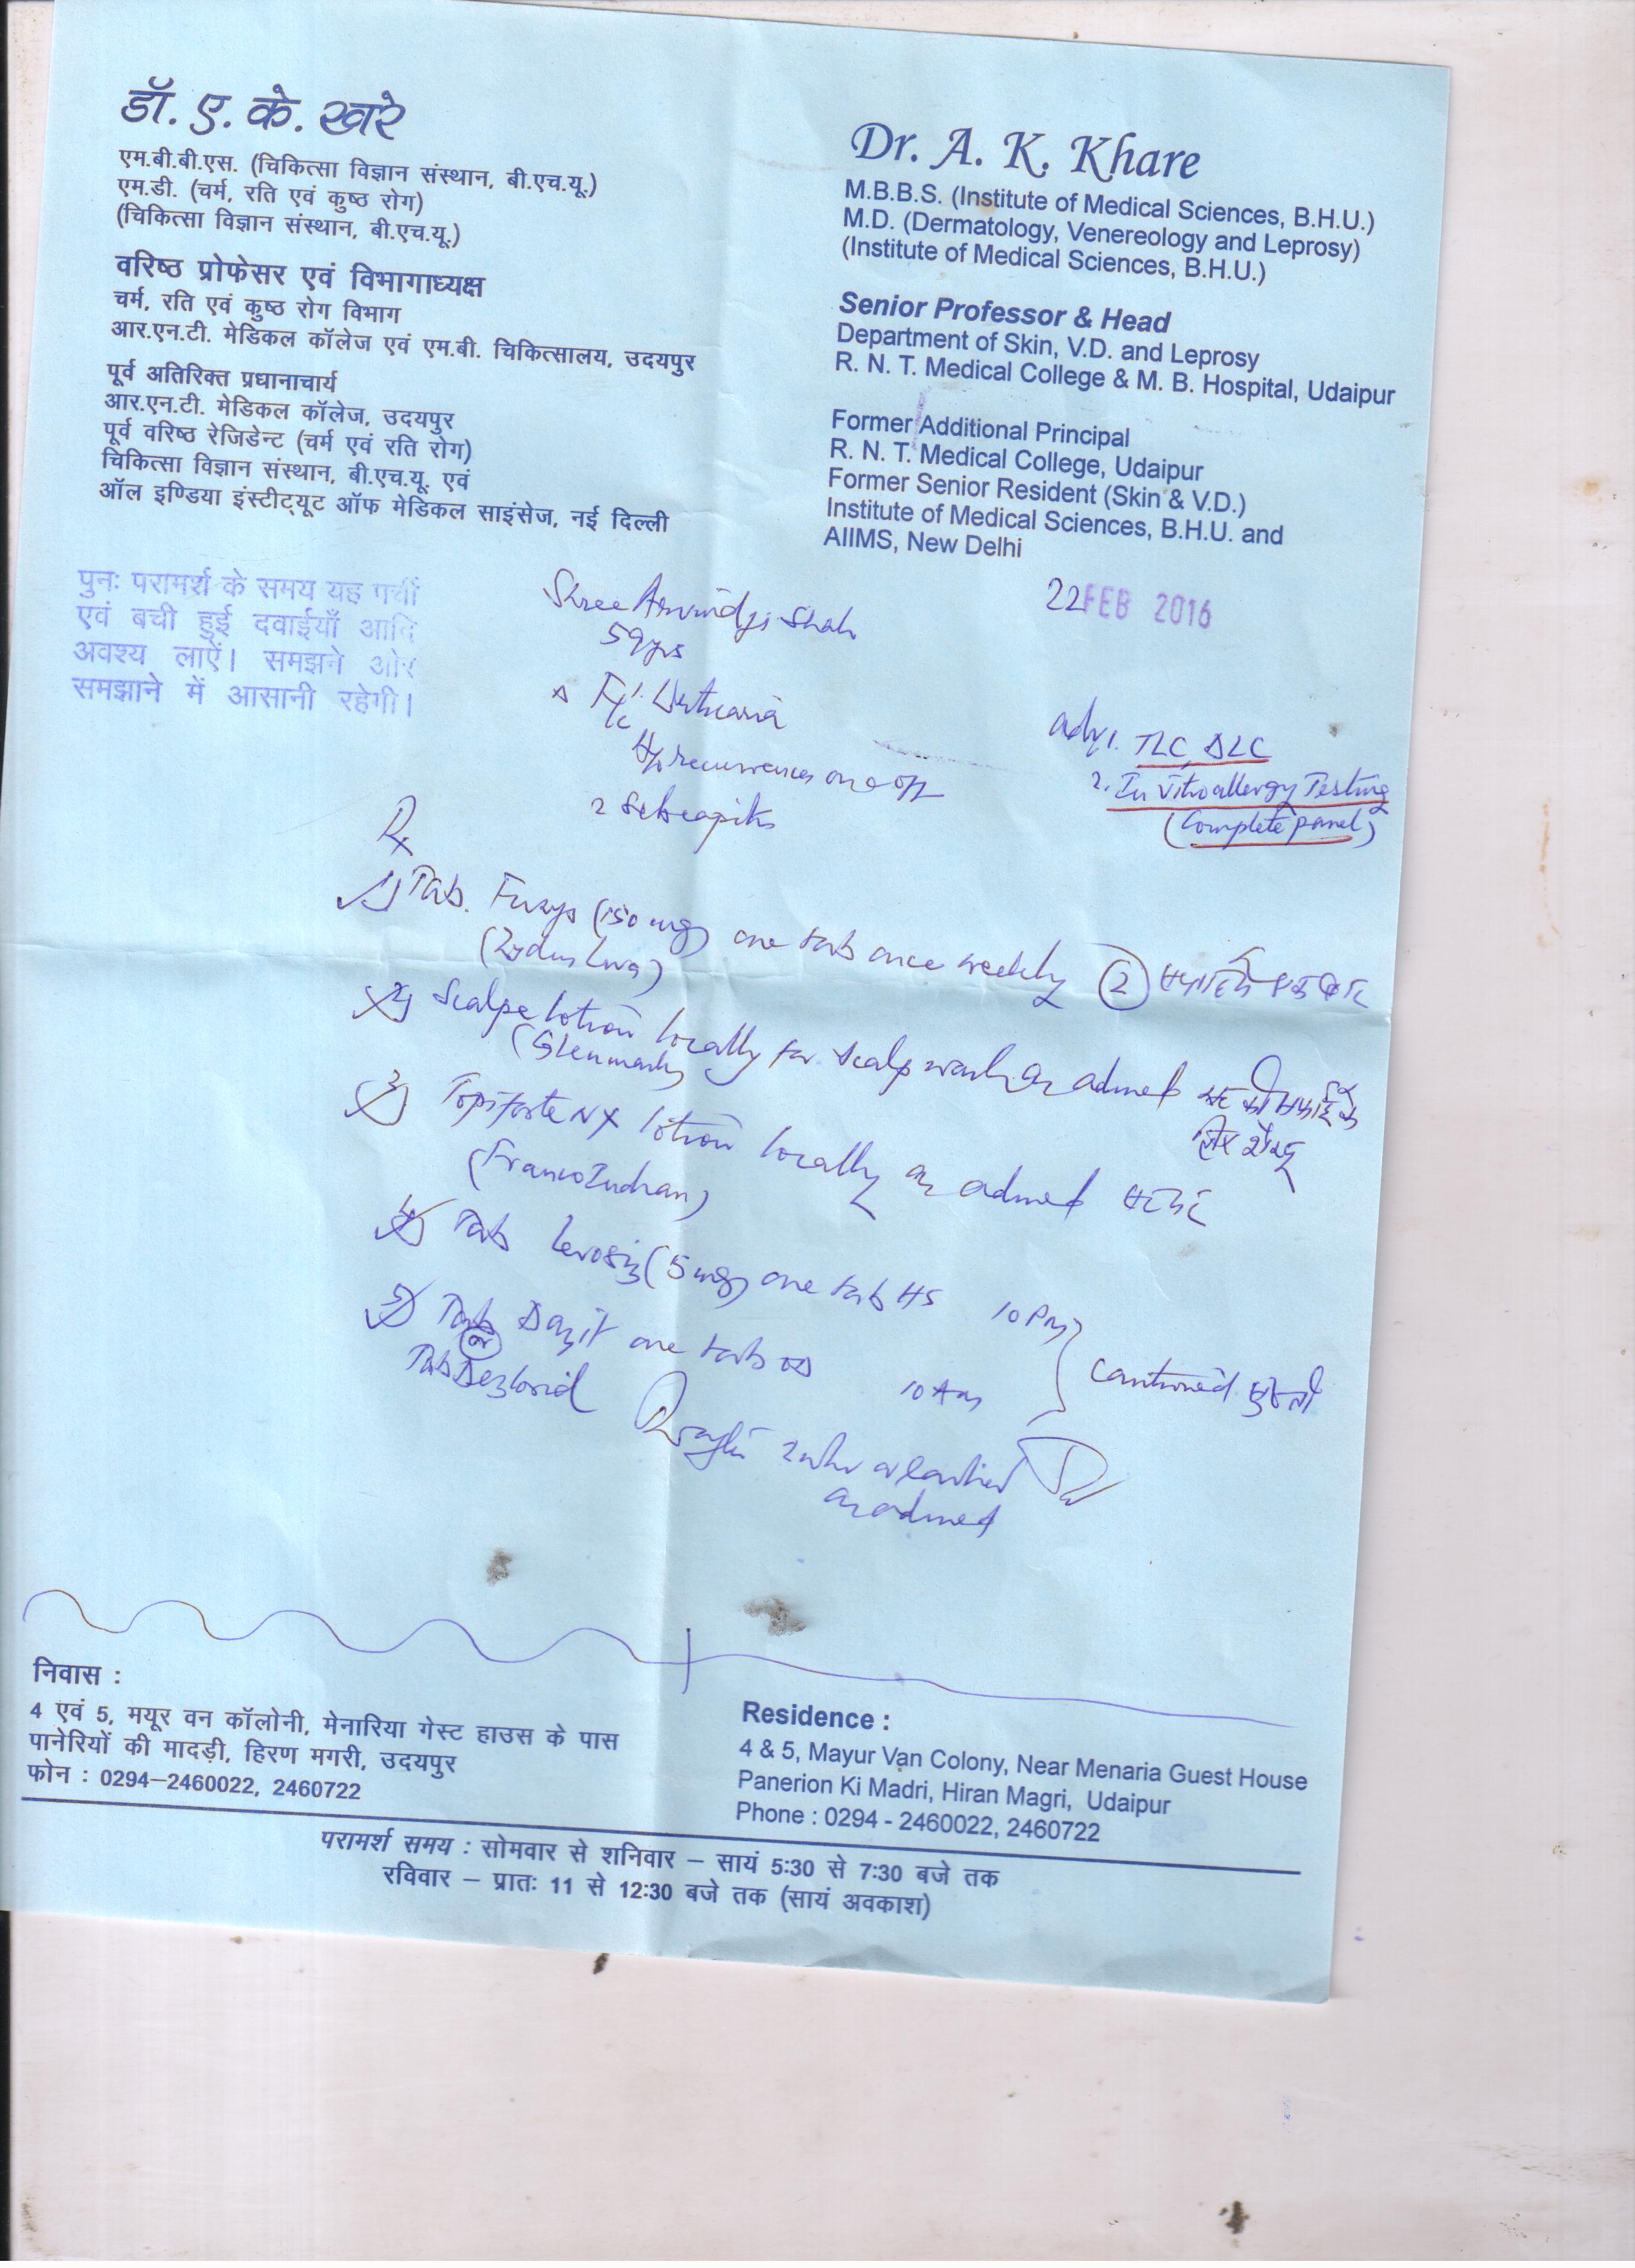 डॉ. ए. के. खरे
एम.बी.बी.एस. (चिकित्सा विज्ञान संस्थान, बी.एच.यू.)
एम.डी. (चर्म, रति एवं कुष्ठ रोग)
(चिकित्सा विज्ञान संस्थान, बी.एच.यू.)
वरिष्ठ प्रोफेसर एवं विभागाध्यक्ष
चर्म, रति एवं कुष्ठ रोग विभाग
आर.एन.टी. मेडिकल कॉलेज एवं एम.बी. चिकित्सालय, उदयपुर
पूर्व अतिरिक्त प्रधानाचार्य
आर.एन.टी. मेडिकल कॉलेज, उदयपुर
पूर्व वरिष्ठ रेजिडेन्ट (चर्म एवं रति रोग)
चिकित्सा विज्ञान संस्थान, बी.एच.यू. एवं
ऑल इण्डिया इंस्टीट्यूट ऑफ मेडिकल साइंसेज, नई दिल्ली
Dr. A. K. Khare
M.B.B.S. (Institute of Medical Sciences, B.H.U.)
M.D. (Dermatology, Venereology and Leprosy)
(Institute of Medical Sciences, B.H.U.)
Senior Professor & Head
Department of Skin, V.D. and Leprosy
R. N. T. Medical College & M. B. Hospital, Udaipur
Former Additional Principal
R. N. T. Medical College, Udaipur
Former Senior Resident (Skin & V.D.)
Institute of Medical Sciences, B.H.U. and
AIIMS, New Delhi
पुनः परामर्श के समय यह पर्ची
एवं बची हुई दवाईयाँ आदि
अवश्य लाऐं। समझने और
समझाने में आसानी रहेगी।
22 FEB 2016
Shree Arvindji Shah
59 yrs
Urticaria
recurrences on & off
adv. 1. TLC, DLC
2. In vitro allergy Testing
(Complete panel)
Rx
1) Tab. (150 mg) one tab once weekly (2)
(Zydus)
2) Scalpe lotion locally for scalp wash as advised
(Glenmark)
3) Topiforte NX lotion locally as advised
(Franco Indian)
4) Tab Levosiz (5 mg) one tab HS 10 PM
5) Tab Dazit one tab OD 10 Am
or
Tab Dezlorid
continued
as advised
निवास :
4 एवं 5, मयूर वन कॉलोनी, मेनारिया गेस्ट हाउस के पास
पानेरियों की मादड़ी, हिरण मगरी, उदयपुर
फोन : 0294-2460022, 2460722
Residence :
4 & 5, Mayur Van Colony, Near Menaria Guest House
Panerion Ki Madri, Hiran Magri, Udaipur
Phone : 0294 - 2460022, 2460722
परामर्श समय : सोमवार से शनिवार – सायं 5:30 से 7:30 बजे तक
रविवार – प्रातः 11 से 12:30 बजे तक (सायं अवकाश)